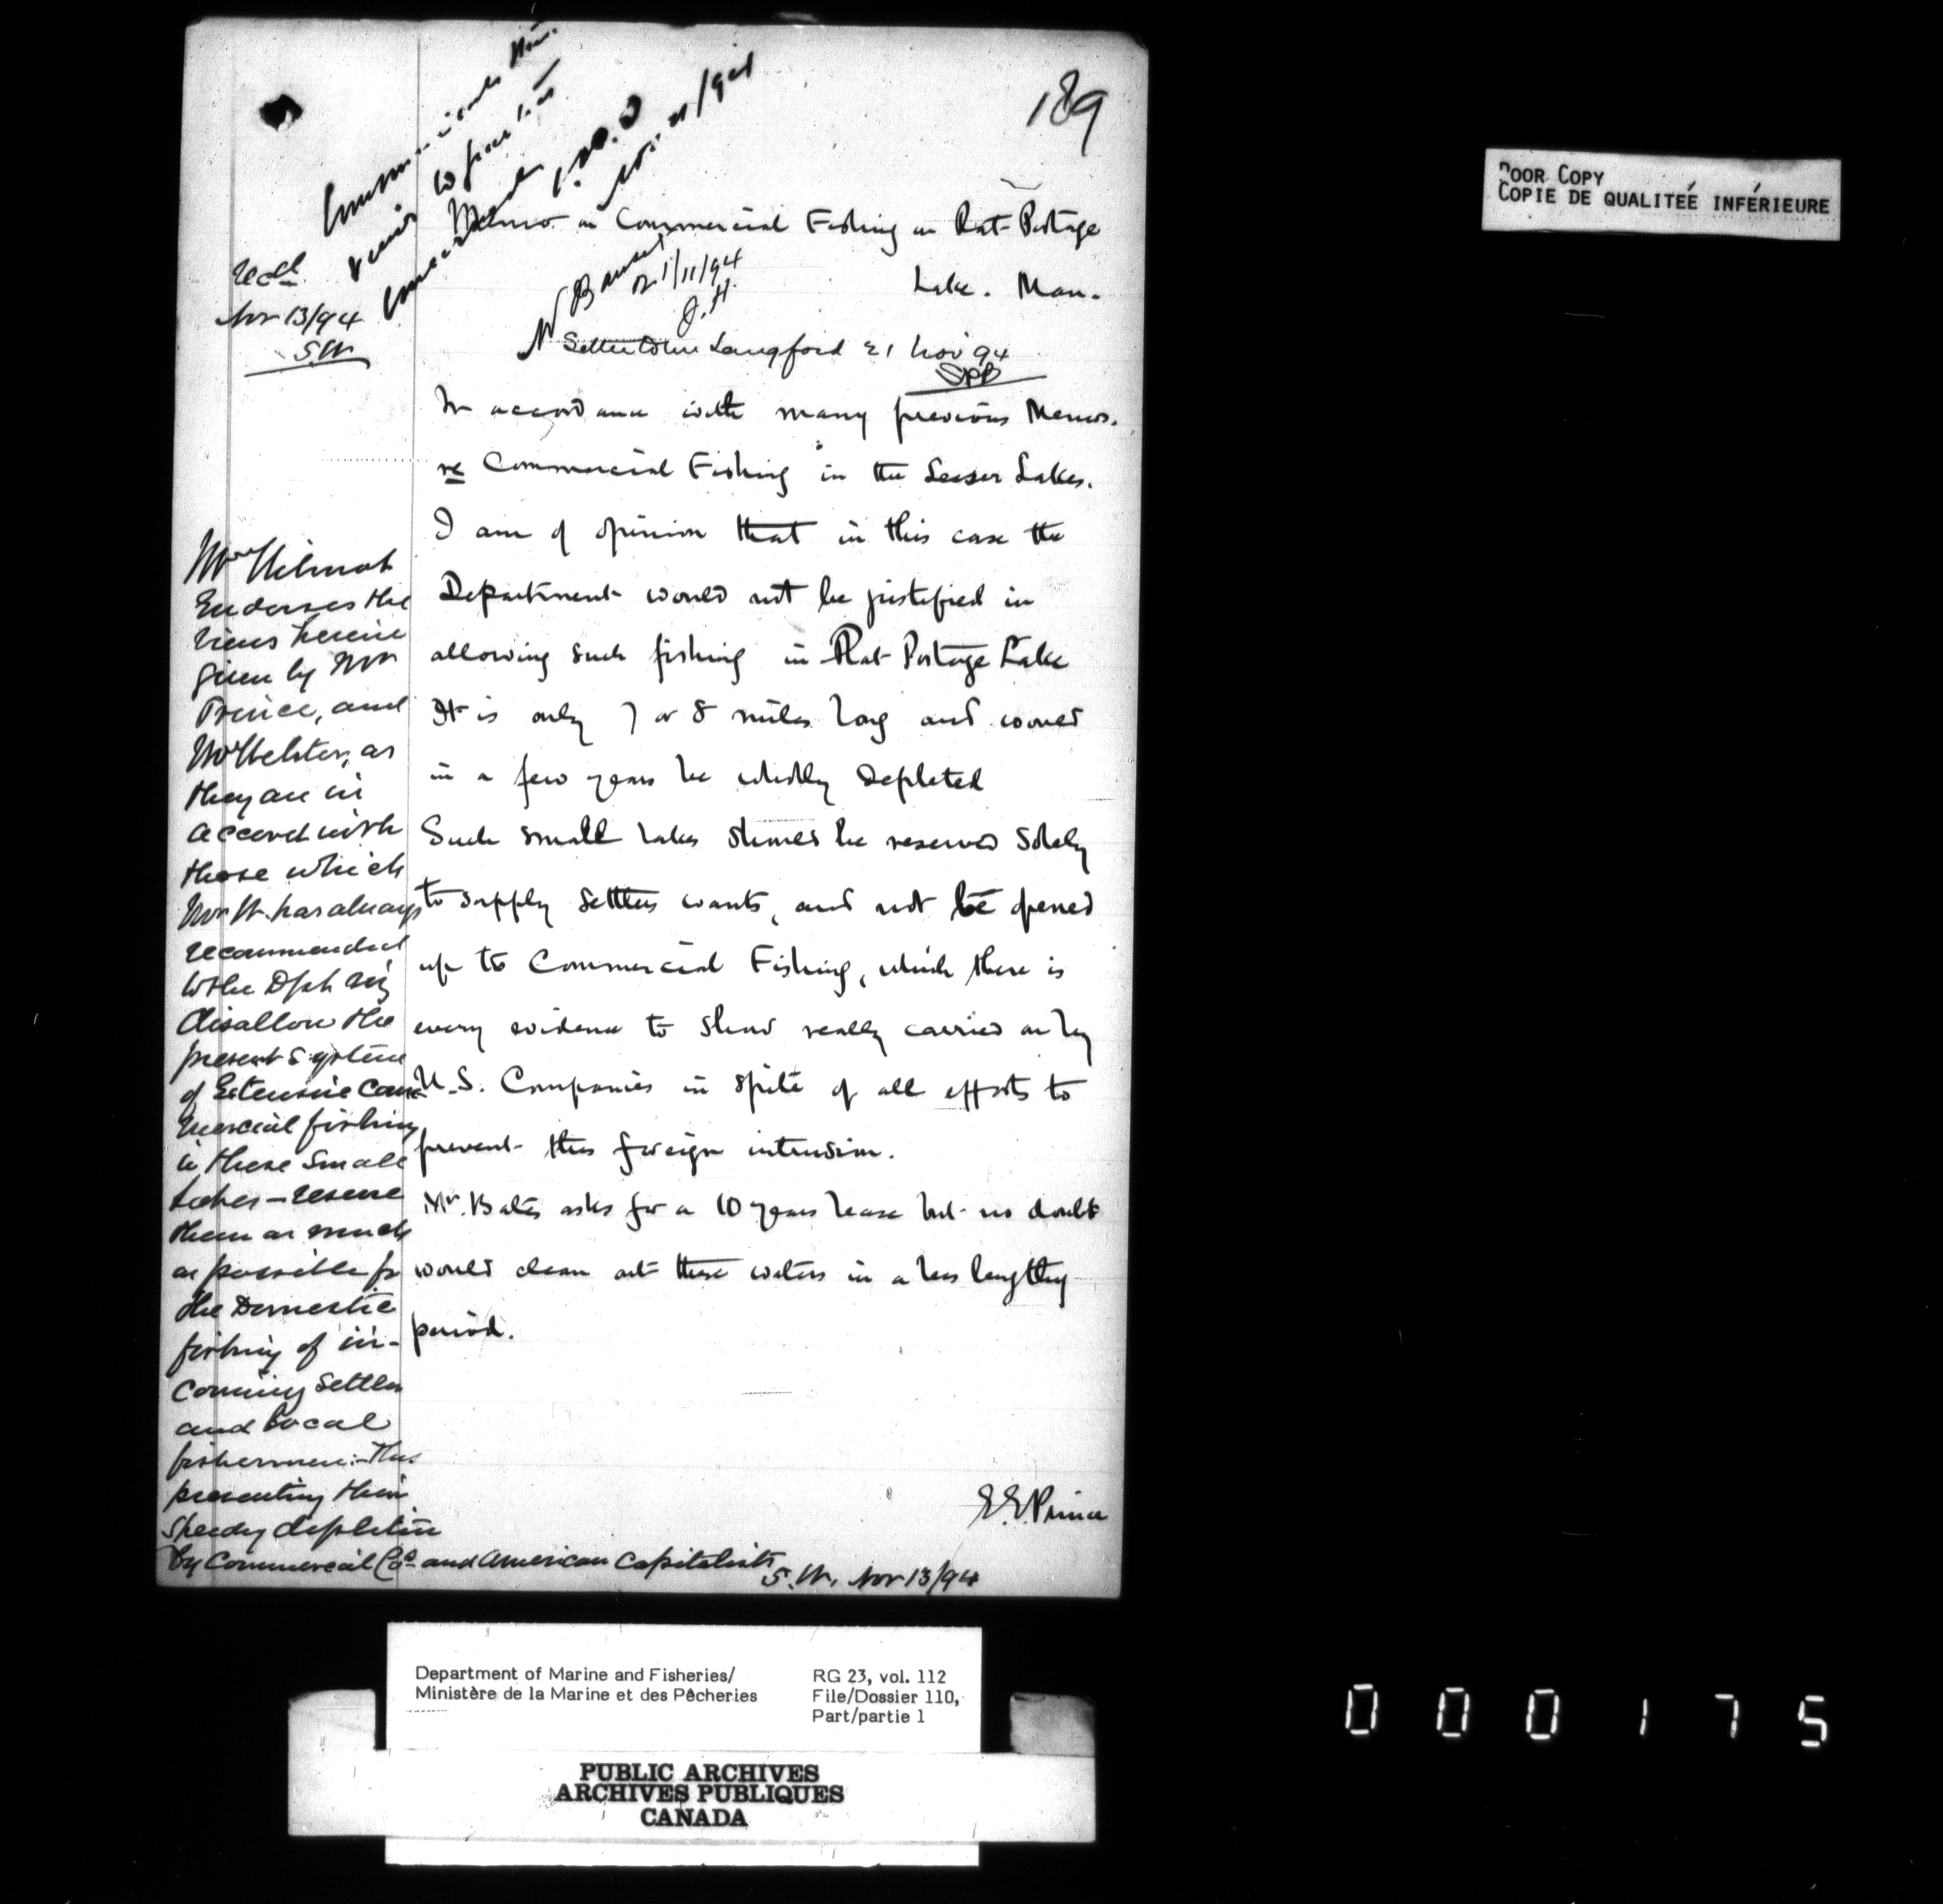 189
Memo on Commercial Fishing in Rat-Portage
Lake. Man.
Recd
Nov 13/94
S.W.
1/11/94
J.H.
Langford 21 Nov 94
In accordance with many previous Memos.
re Commercial Fishing in the Lesser Lakes.
I am of opinion that in this case the
Department would not be justified in
allowing such fishing in Rat Portage Lake
It is only 7 or 8 miles long and would
in a few years be wholly depleted
Such small lakes should be reserved solely
to supply settlers wants, and not be opened
up to Commercial Fishing, which there is
every evidence to show really carried on by
U.S. Companies in spite of all efforts to
prevent this foreign intrusion.
Mr. Bates asks for a 10 years lease but no doubt
would clean out these waters in a less lengthy
period.
E.E. Prince
Mr Wilmot
Endorses the
views herein
given by Mr
Prince, and
Mr Webster, as
they are in
accord with
those which
Mr W. has always
recommended
to the Dpt viz
disallow the
present system
of Extensive Com-
mercial fishing
in these small
lakes - reserve
them as much
as possible for
the Domestic
fishing of in-
coming Settlers
and local
fishermen:- Thus
preventing their
speedy depletion
by Commercial Cos and American Capitalists
S.W. Nov 13/94
POOR COPY
COPIE DE QUALITEÉ INFÉRIEURE
Department of Marine and Fisheries/
Ministère de la Marine et des Pêcheries
RG 23, vol. 112
File/Dossier 110,
Part/partie 1
PUBLIC ARCHIVES
ARCHIVES PUBLIQUES
CANADA
000175